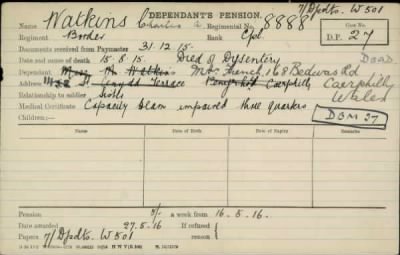 7/Dpdts. W 501
DEPENDANT'S PENSION.
Name Watkins Charles A. Regimental No. 8888 Case No.
Regiment Border Rank Cpl. D.P. 27
Documents received from Paymaster 31.12.15.
Date and cause of death 15.8.15. Died of Dysentery DEAD
Dependant Mary M Watkins Mrs French, 168 Bedwas Rd
Address St Terrace Caerphilly Caerphilly
Relationship to soldier Wales
Medical Certificate Capacity to earn impaired three quarters
Children:— D.B.M 27
Name Date of Birth. Name. Date of Birth.
Pension 5/- a week from 16.5.16.
Date awarded 27.5.16 If refused
Papers 7/Dpdts. W 501 reason